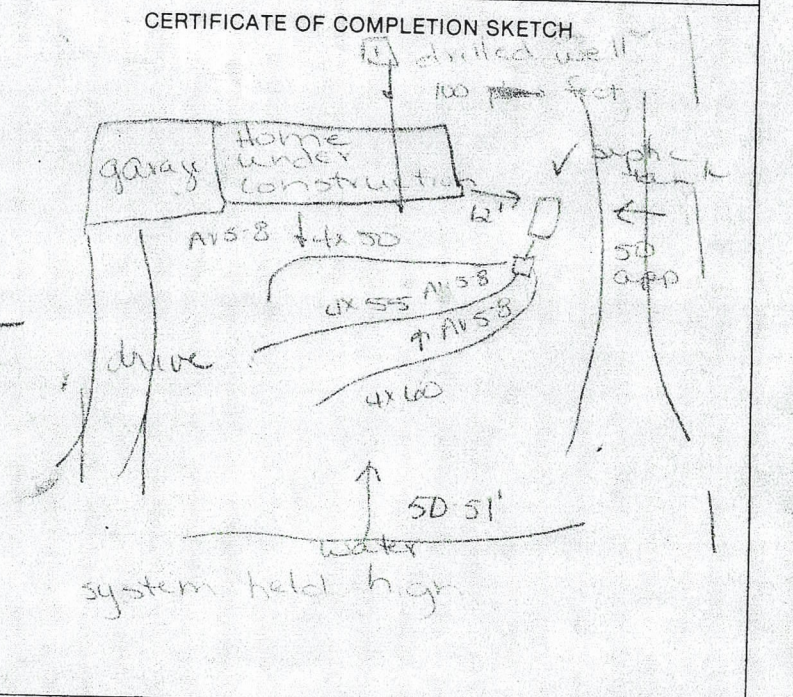 CERTIFICATE OF COMPLETION SKETCH
drilled well
100 feet
garay
Home
under
construction
12'
septic
tank
50
app
Av 5-8 4x 50
4x 55 Av 5-8
Av 5-8
4x60
drive
50-51'
water
system held high